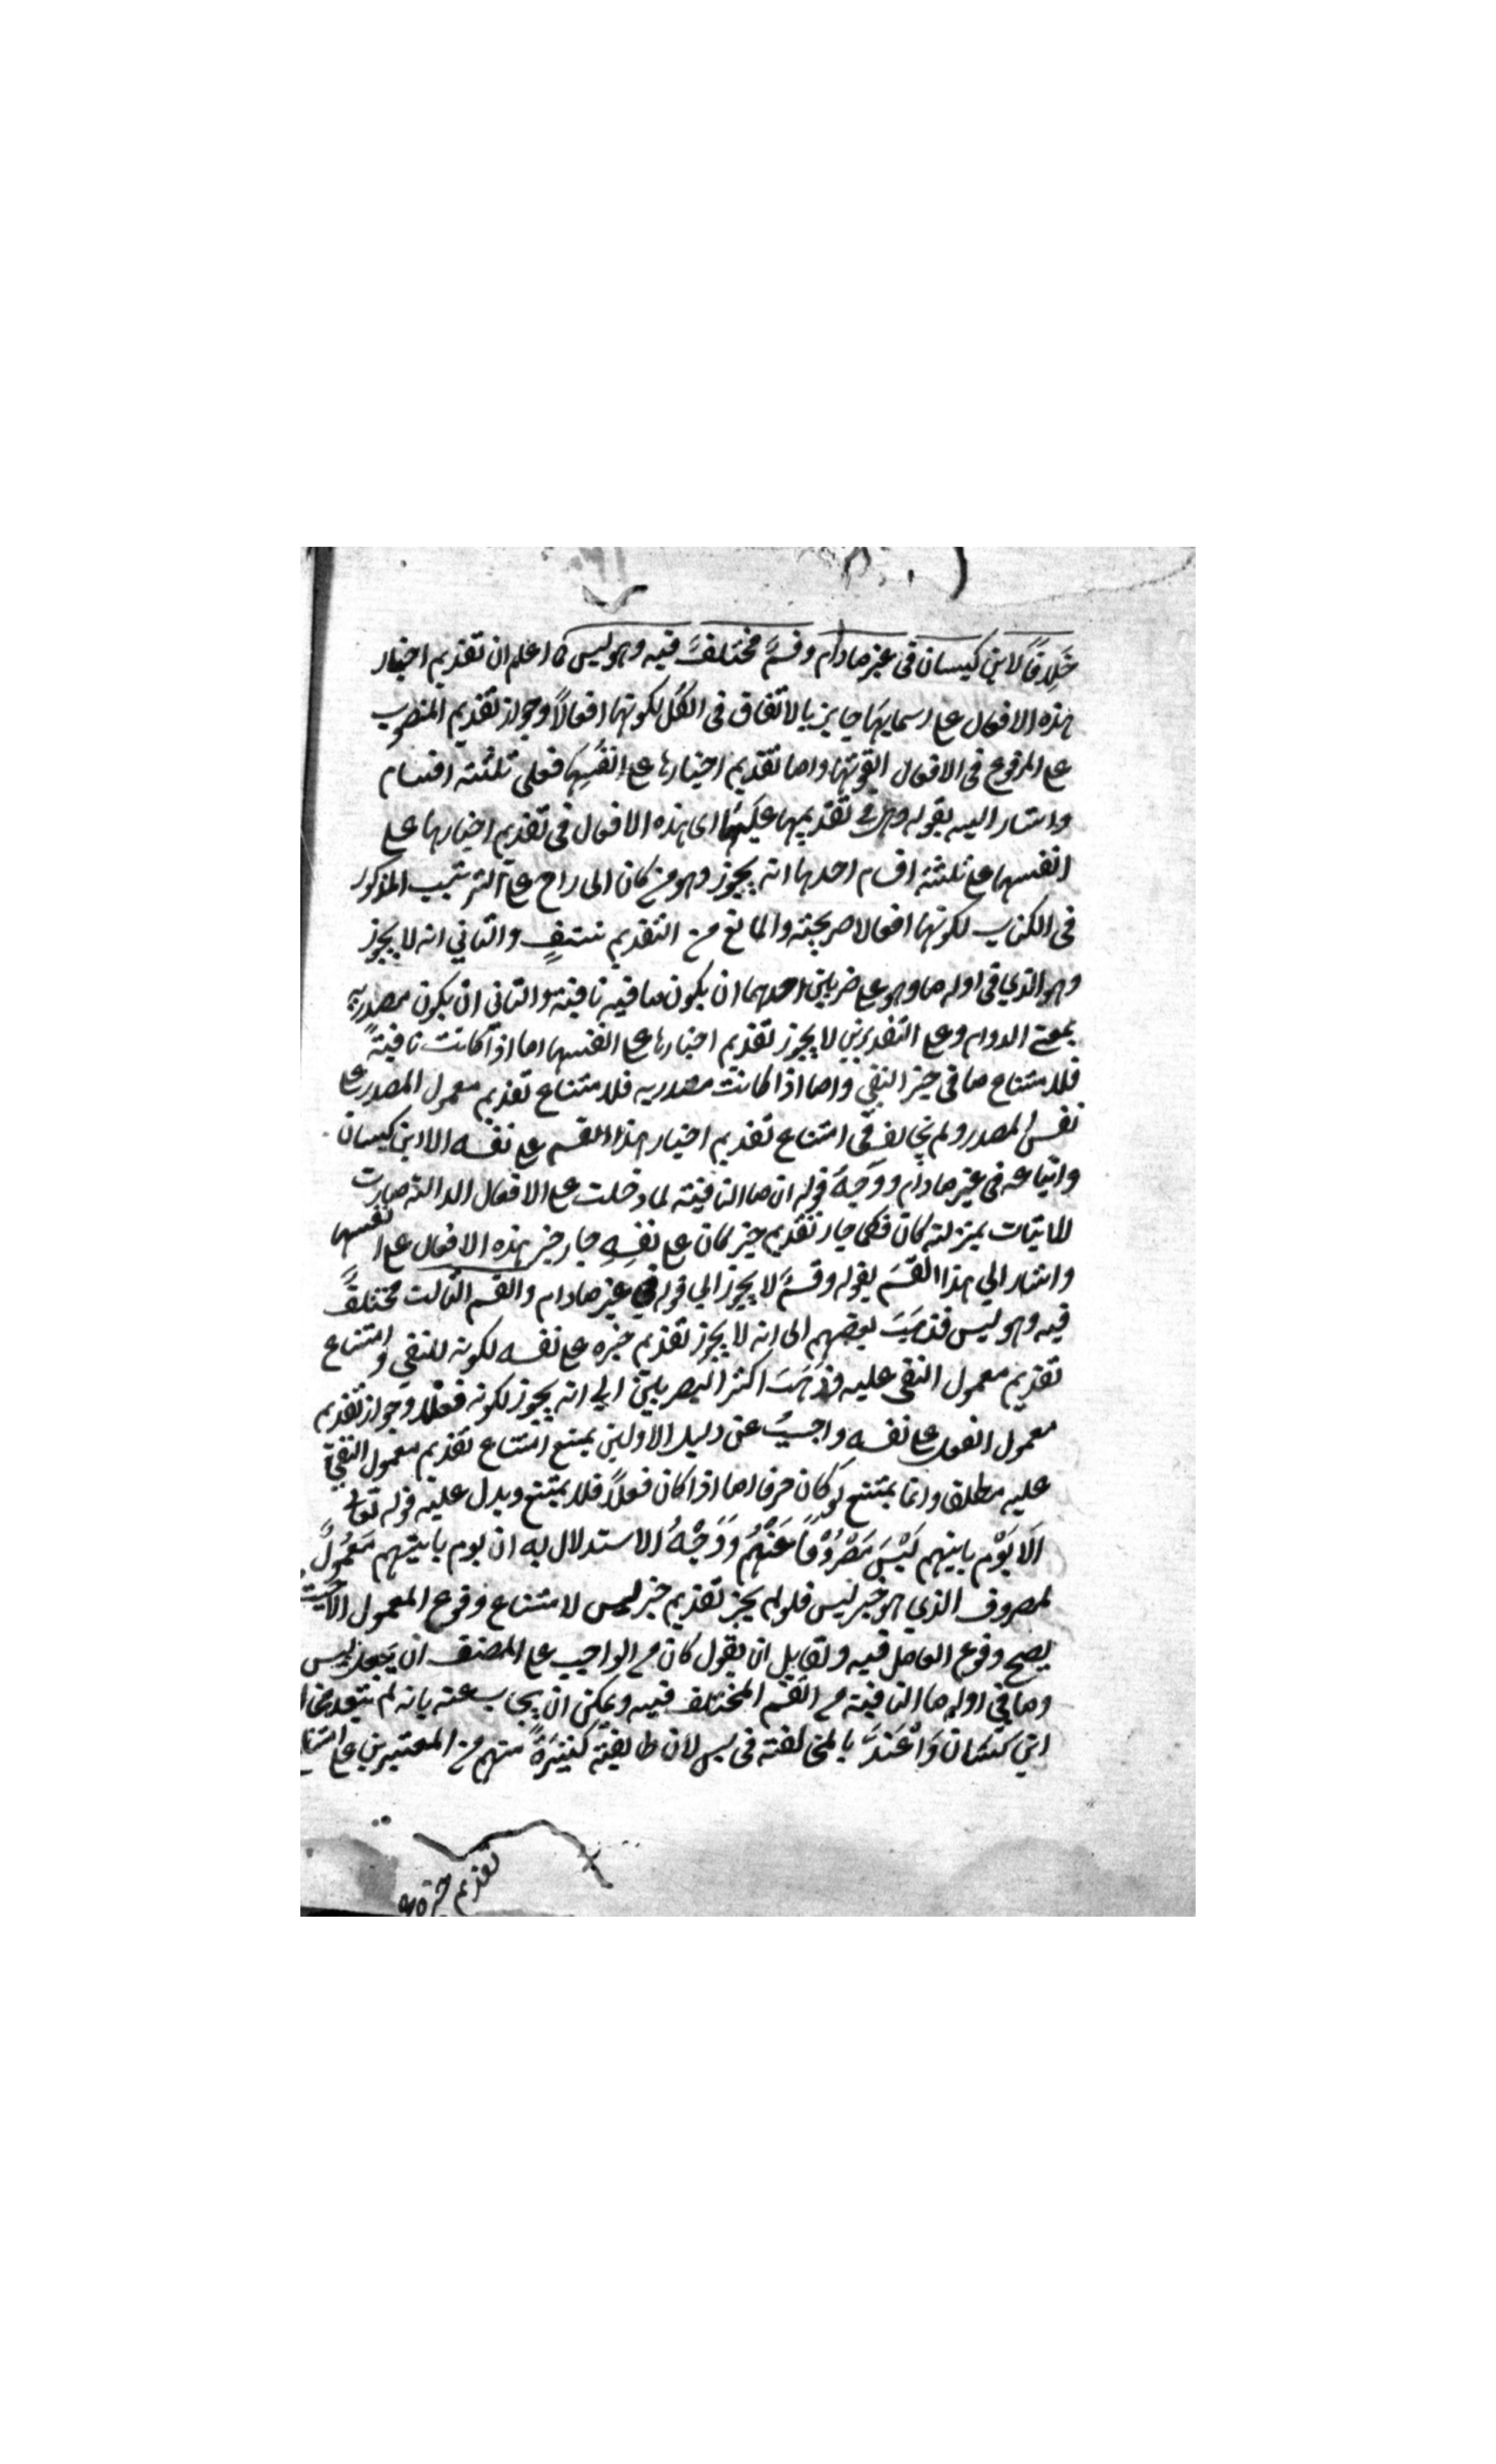 خِلَافًا لابن كيسان فى غير مادام وقسمٌ مختلفٌ فيه وهو ليس اعلم ان تقديم اخبار
هذه الافعال على اسمايها جايز بالاتفاق فى الكل لكونها افعالاً وجواز تقديم المنصوب
على المرفوع فى الافعال لقوتها واما تقديم اخبارها على انفسها فعلى ثلثة اقسام
واشار اليه بقوله وهى فى تقديمها عليها اى هذه الافعال فى تقديم اخبارها على
انفسها على ثلثة اقسام احدها انه يجوز وهو من كان الى راح على الترتيب المذكور
فى الكتاب لكونها افعالا صريحة والمانع من التقديم منتفٍ والثاني انه لا يجوز
وهو الذي فى اوله ما وهو على ضربين احدهما ان يكون ما فيه نافية والثاني ان يكون مصدرية
بمعنى الدوام وعلى التقديرين لا يجوز تقديم اخبارها على انفسها اما اذا كانت نافيةً
فلامتناع ما فى حيز النفي واما اذا كانت مصدريه فلامتناع تقديم معمول المصدر على
نفس المصدر ولم يخالف فى امتناع تقديم اخبار هذا القسم على نفسه الا ابن كيسان
واتباعه فى غير مادام ووَجْهُ قوله ان ما النافية لما دخلت على الافعال الدالة صارت
للاثبات بمنزلة كان فكما جاز تقديم خبر كان على نفسِهِ جاز خبر هذه الافعال على انفسها
واشار الي هذا القسم بقوله وقسمٌ لا يجوز الي قوله فى غير مادام والقسم الثالث مختلفٌ
فيه وهو ليس فذهبَتْ بعضهم الى انه لا يجوز تقديم خبره على نفسه لكونه للنفي وامتناع
تقديم معمول النفى عليه وذهبَتْ اكثر البصريين الي انه يجوز لكونه فعلا وجواز تقديم
معمول الفعل على نفسه واجيبُ عن دليل الاولين بمنع امتناع تقديم معمول النفى
عليه مطلقا وانما يمتنع لو كان حرفا اما اذا كان فعلاً فلا يمتنع ويدل عليه قوله تعالى
اَلَا يَوْم ياتيهم لَيْسَ مَصْرُوْفًا عَنْهُمْ وَوَجْهُ الاستدلال به ان يوم ياتيهم مَعْمُولٌ
لمصروف الذي هو خبر ليس فلو لم يجز تقديم خبر ليس لامتناع وقوع المعمول الا حيث
يصح وقوع العامل فيه ولقايل ان يقول كان من الواجب على المصنف ان يجعل ليس
وما فى اوله ما النافية من القسم المختلف فيه ويمكن ان يجاب عنه بانه لم يعتد بخلاف
ابن كَيْسَان وَاعْتَدَّ بالمخالفة فى ليس لان طايفة كَثيرَةً منهم من المعتبرين على امتناع
تقديم خبره